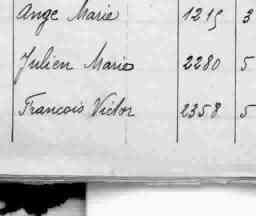 Ange Marie 1215 3
Julien Marie 2280 5
Francois Victor 2358 5